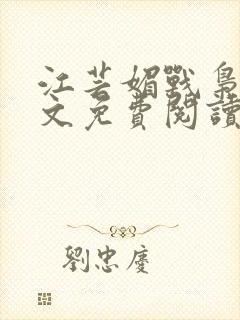 江芸媚戰梟
文免費閱讀
劉忠慶